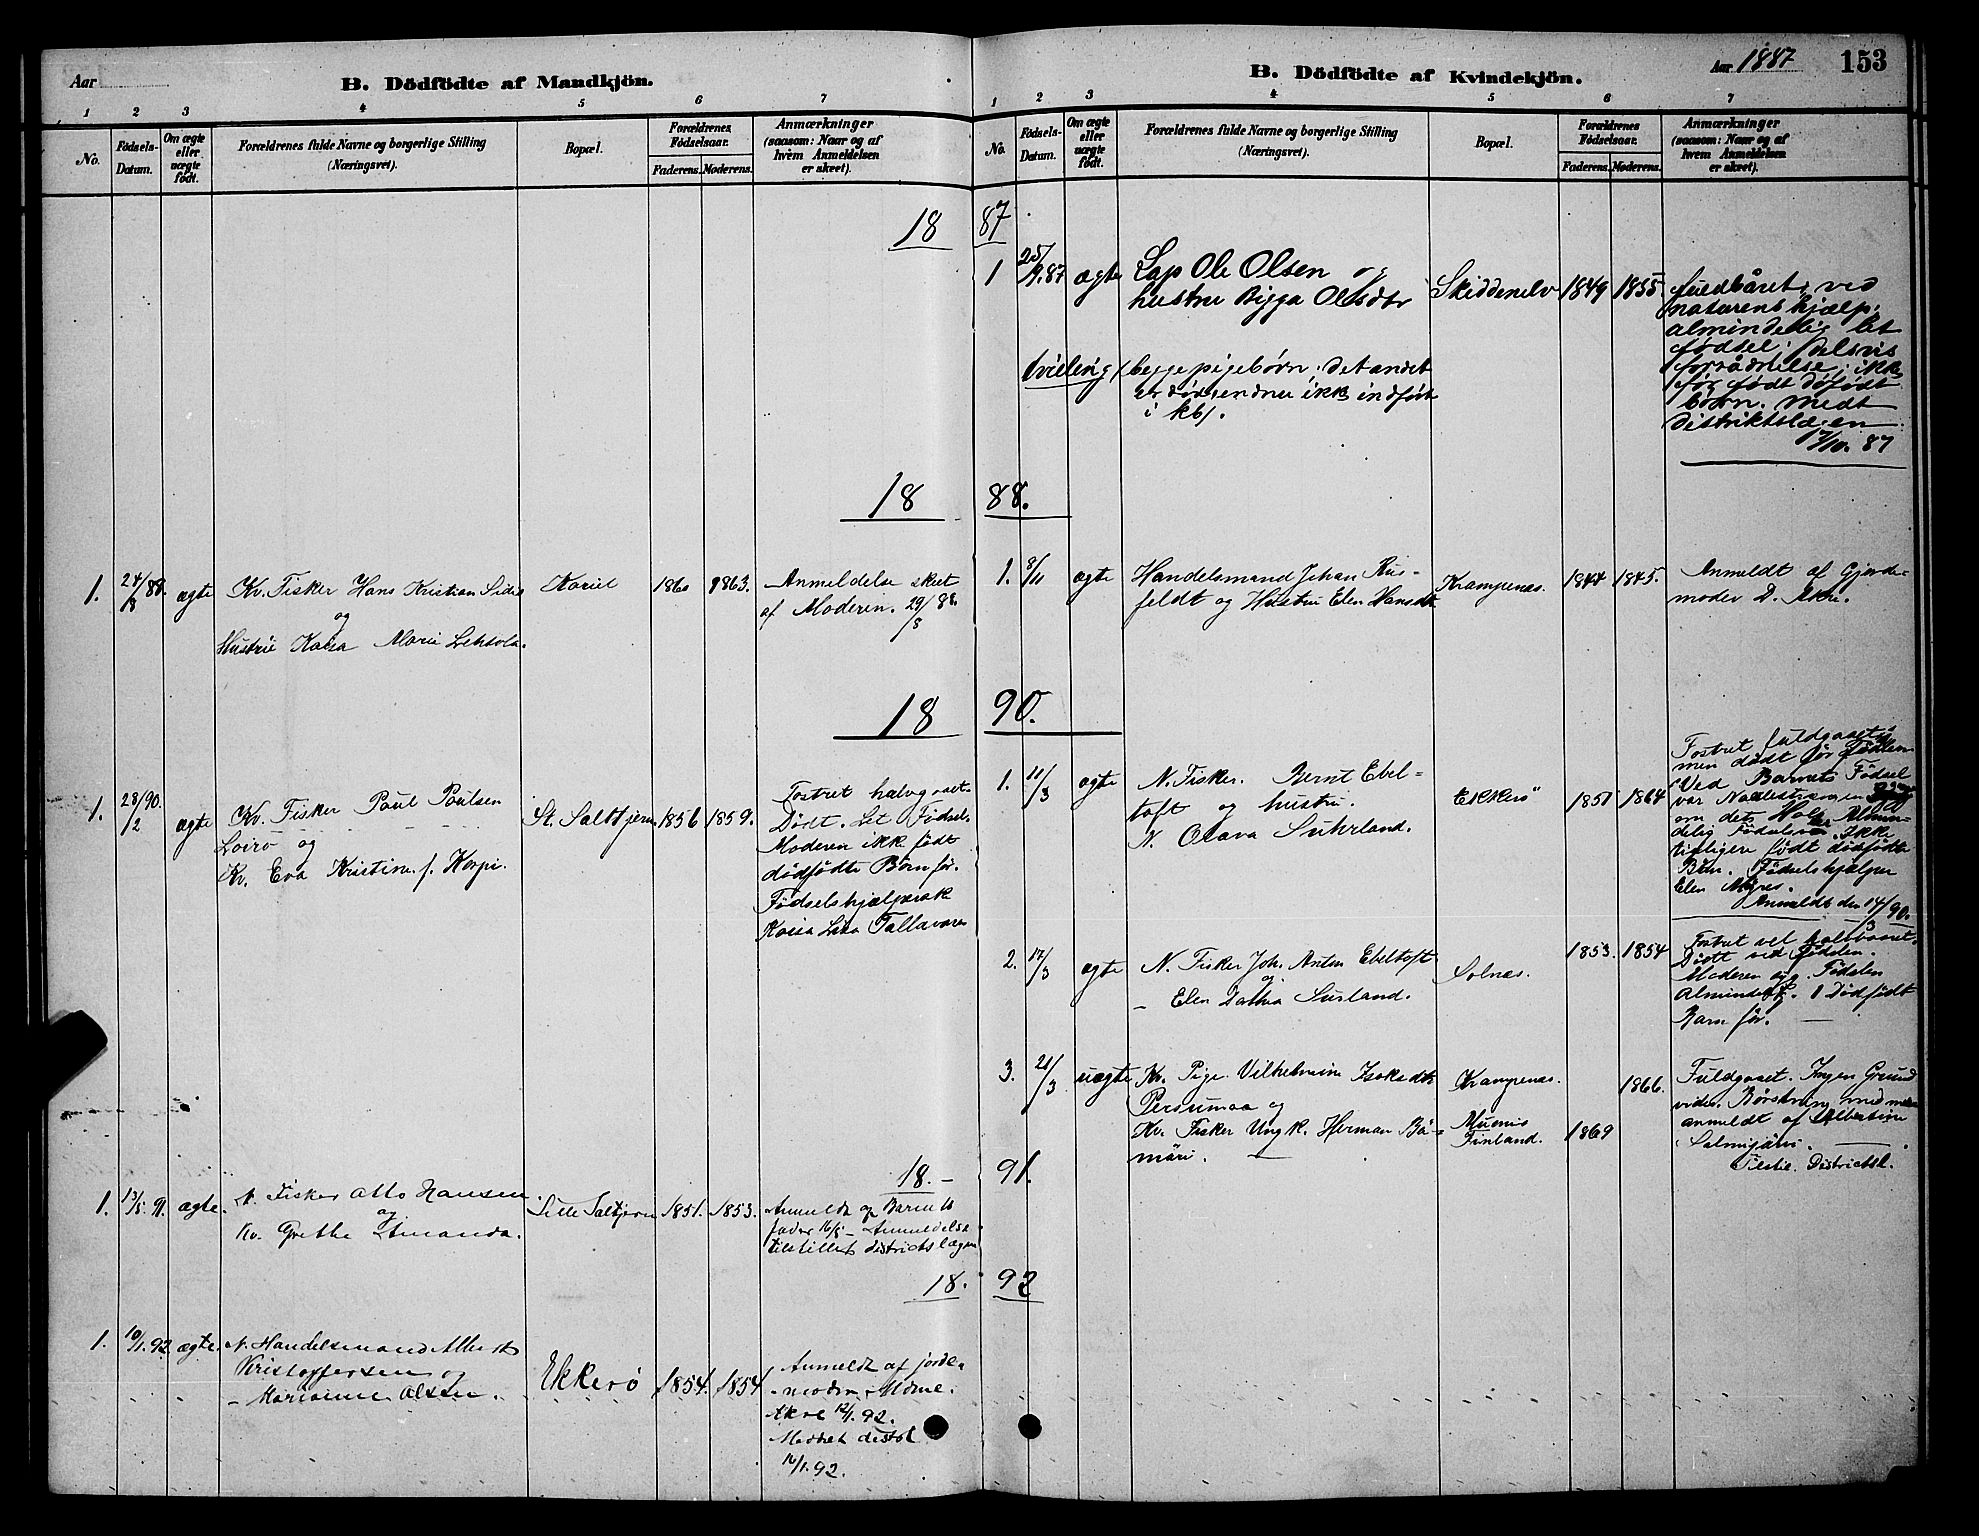 Aar
B. Dödfödte af Mandkjön.
1 2 3 4 5 6 7
No.
Födsels-
Datum.
Om ægte
eller
uægte
födt.
Forældrenes fulde Navne og borgerlige Stilling
(Næringsvei).
Bopæl.
Forældrenes
Födselsaar.
Faderens. Moderens.
Anmærkninger
(saasom: Naar og af
hvem Anmeldelsen
er skeet).
18
18
1. 24/8 88. ægte Kv. Fisker Hans Kristian
og
Hustrue Kaisa Marie Lehtola.
Kariel 1860 1863.
Anmeldelse skeet
af Moderen. 29/8 88.
18
1. 28/2 90. ægte
Kv. Fisker Paul Paulsen
Loirö og
Kv. Eva Kristine f. Korpi.
St. Saltjern 1856 1859.
Fostret halvgaaet
Dödt. Let Födsel.
Moderen ikke födt
dödfödte Börn för.
Födselshjælperske
Kaisa Lisa Tallavara
18.-
1. 13/5 91. ægte.
N. Fisker Otto Hansen
og
Kv. Grethe Amanda.
Lille Saltjern 1851. 1853.
Anmeldt af Barnets
fader 16/5 - Anmeldelse
tilstillet districtslægen
18.
1. 10/1. 92. ægte.
N. Handelsmand Albert
Kristoffersen og
- Marianne Olsen.
Ekkerö 1854. 1854
Anmeldt af jorde-
moder
Akre 12/1. 92.
12/1. 92.
B. Dödfödte af Kvindekjön.
Aar 1887
153
1 2 3 4 5 6 7
No.
Födsels-
Datum.
Om ægte
eller
uægte
födt.
Forældrenes fulde Navne og borgerlige Stilling
(Næringsvei).
Bopæl.
Forældrenes
Födselsaar.
Faderens. Moderens.
Anmærkninger
(saasom: Naar og af
hvem Anmeldelsen
er skeet).
87
1 25/9.87 ægte
Lap Ole Olsen og
hustru Bigga Olsdtr
Skiddenelv 1849 1855
fuldbåret; ved
naturens hjælp;
almindelig let
fødsel; delvis
forrådnelse; ikke
før født dødfødt
børn. medt
distriktslægen
17/10. 87
tvilling/ begge pigebørn; det andet
er død, endnu ikke indført
i kb/.
88.
1. 8/11 ægte
Handelsmand Johan Rus-
feldt og Hustru Elen Hansdt
Krampenæs. 1844 1845.
Anmeldt af Gjorde-
moder D. Akre.
90.
1. 11/3 ægte
N. Fisker. Bernt Ebel-
toft og hustru.
N. Olava Suhrland.
Ekkerö 1851 1864
Fostret fuldgaaet
men dödt för Födselen
Ved Barnets Födsel
var Navlestrængen
om dets Hals Almin-
delig Födsel. Ikke
tidligere födt dödfödte
Börn. Födselshjælper
Elen
Anmeldt den 14/3 90.
2. 17/3 ægte
N. Fisker Joh. Anton Ebeltoft
og
- Elen Dathia Surland.
Golnæs. 1853. 1854
Fostret vel halvbaaret.
Dödt ved Födselen.
Moderen Födselen
Almindelig. 1 Dödfödt
Barn för.
3. 21/3 uægte
Kv. Pige Vilhelmine Isaksdtr
Persumaa og
Kv. Fisker Ungk. Herman Bä-
märi.
Krampenæs.
Muonis
Finland.
1869
1866.
Fuldgaaet. Ingen Grund
vides.
anmeldt af Albertine
Salmijärvi.
Districtsl.
91.
92